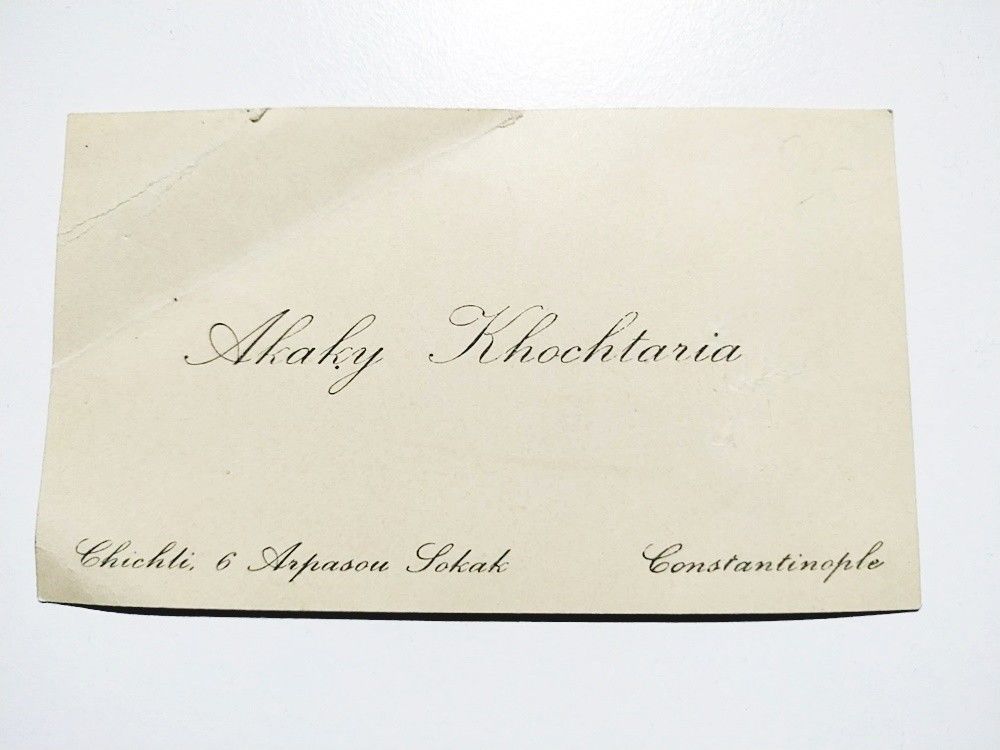 Akaky Khochtaria
Chichli, 6 Arpasou Sokak Constantinople